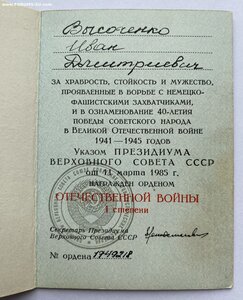 Высоченко
Иван
Дмитриевич
ЗА ХРАБРОСТЬ, СТОЙКОСТЬ И МУЖЕСТВО,
ПРОЯВЛЕННЫЕ В БОРЬБЕ С НЕМЕЦКО-
ФАШИСТСКИМИ ЗАХВАТЧИКАМИ,
И В ОЗНАМЕНОВАНИЕ 40-ЛЕТИЯ
ПОБЕДЫ СОВЕТСКОГО НАРОДА
В ВЕЛИКОЙ ОТЕЧЕСТВЕННОЙ ВОЙНЕ
1941—1945 ГОДОВ
Указом ПРЕЗИДИУМА
ВЕРХОВНОГО СОВЕТА СССР
от 11 марта 1985 г.
НАГРАЖДЕН ОРДЕНОМ
ОТЕЧЕСТВЕННОЙ ВОЙНЫ
I степени
Секретарь Президиума
Верховного Совета СССР
№ ордена 1749218